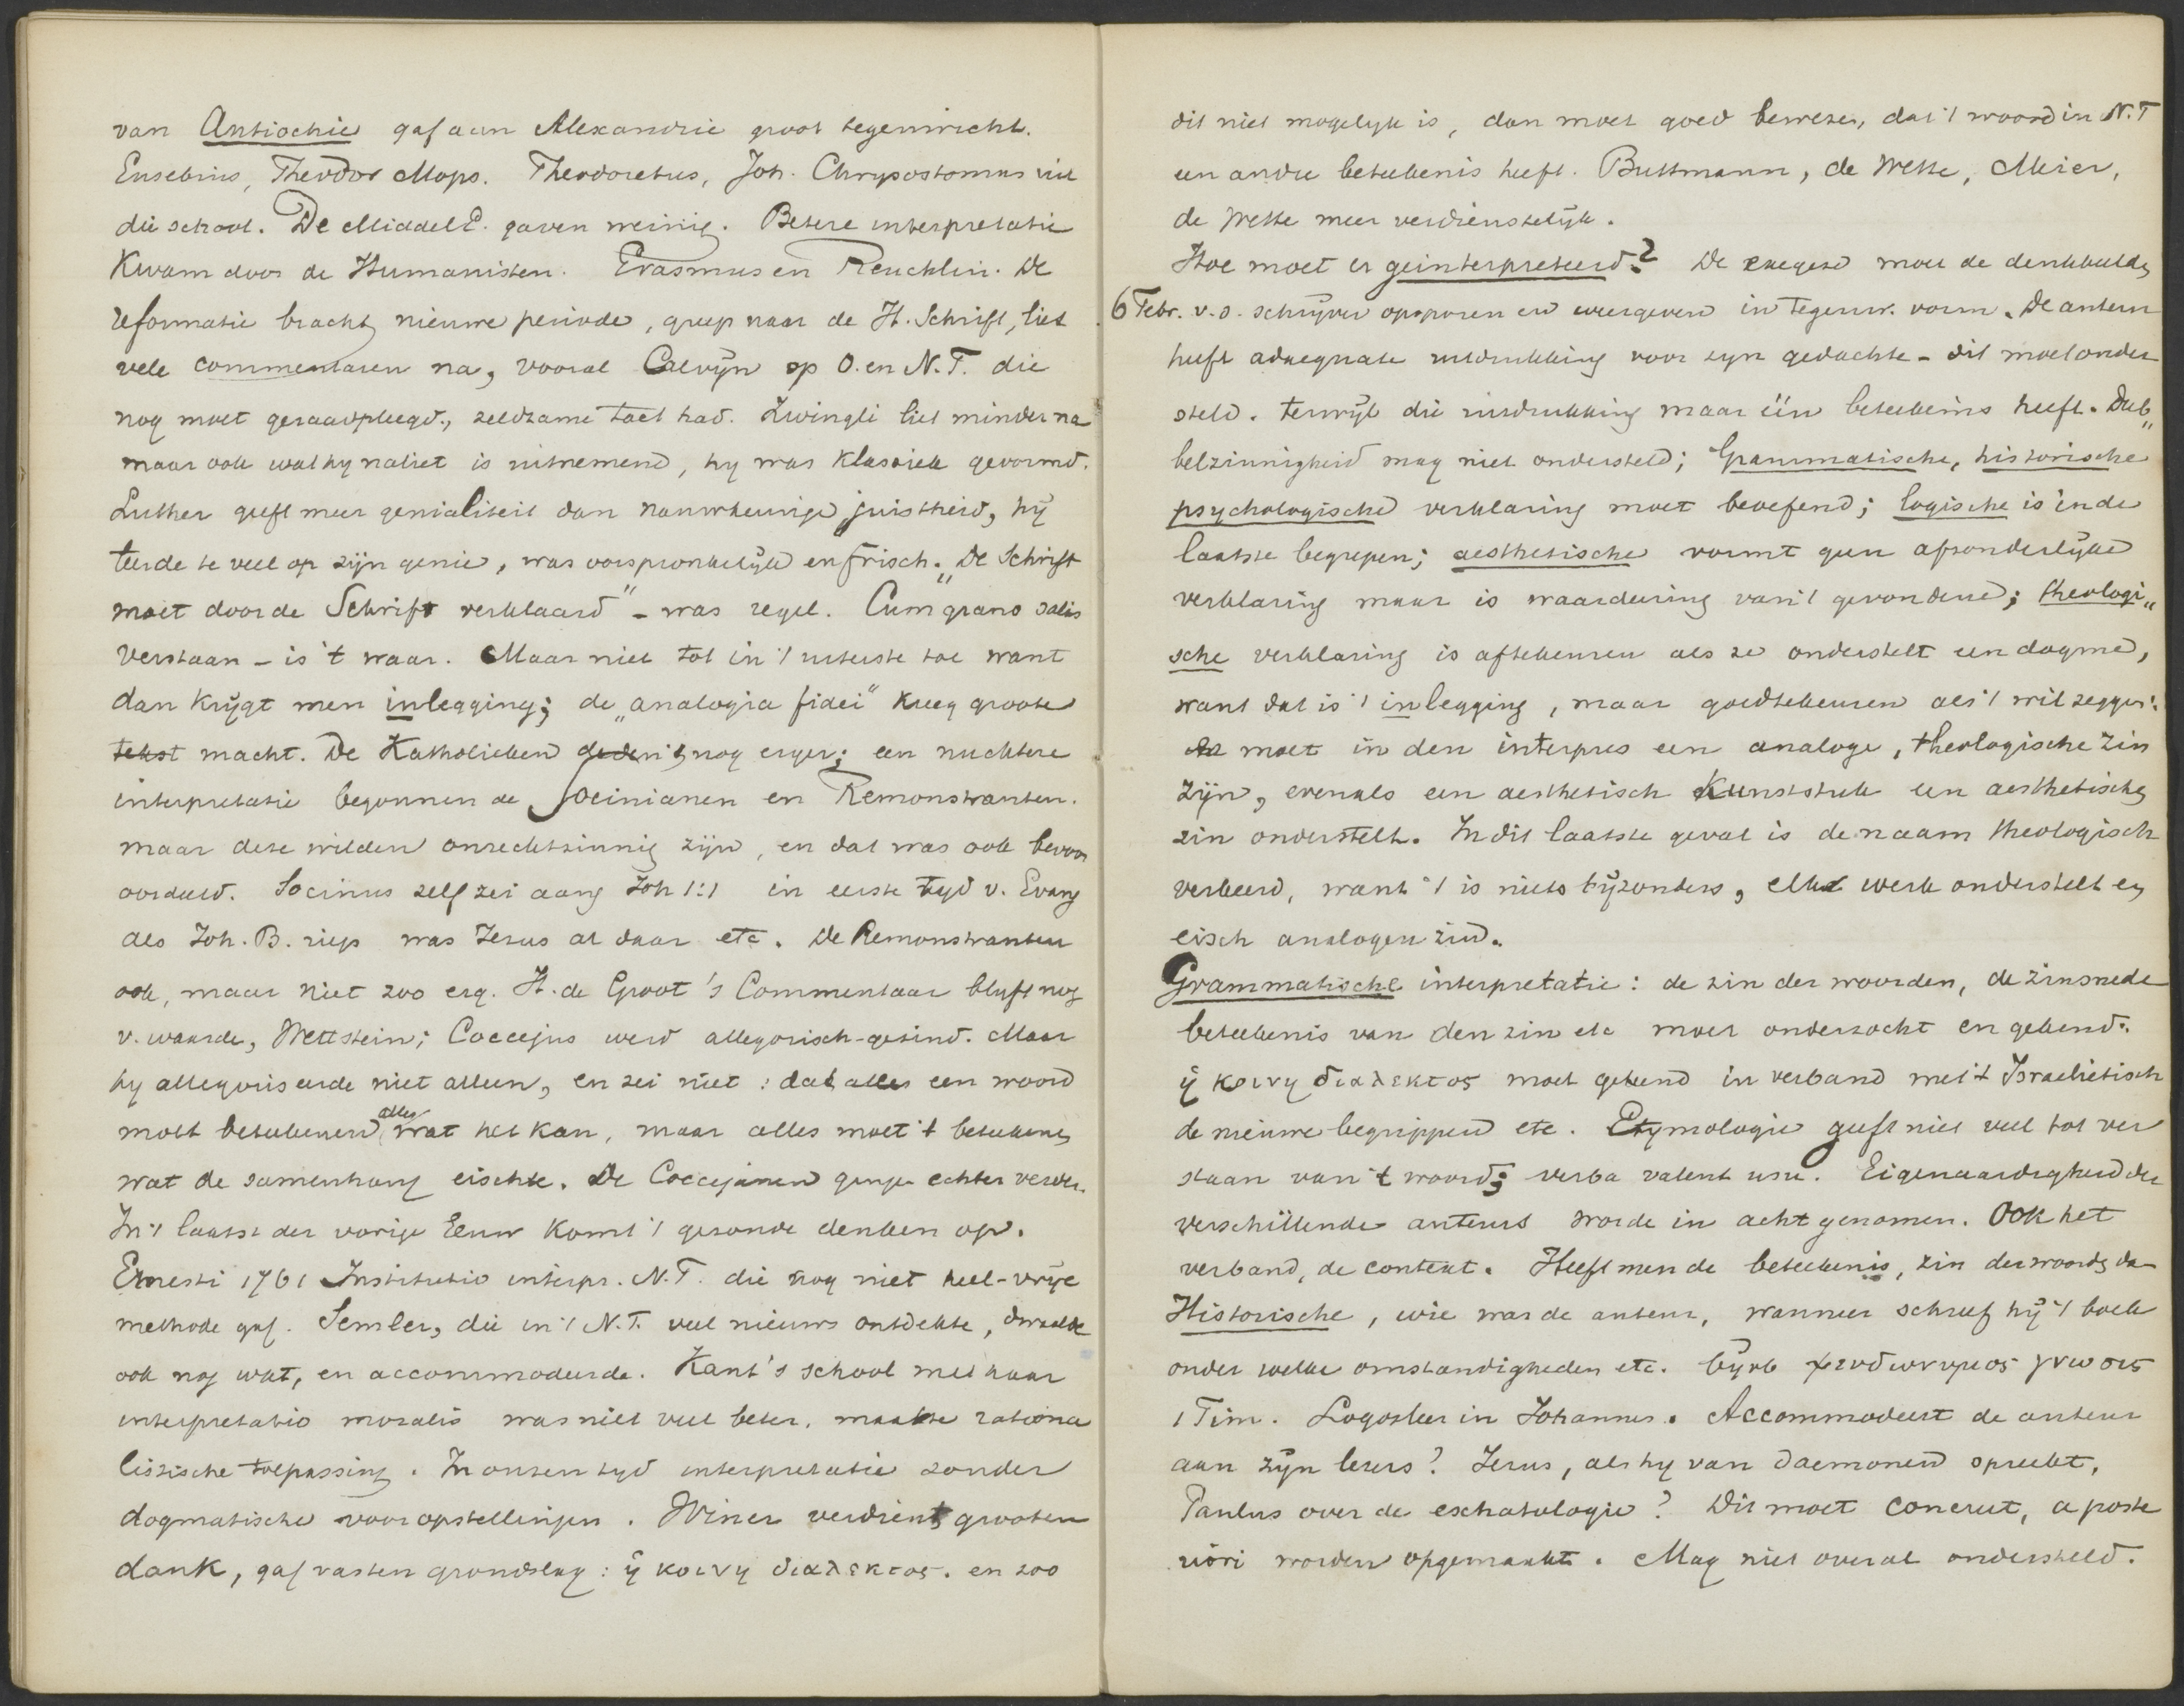 van Antiochie gaf aan Alexandrie groot tegenwicht.
Eusebius, Theodor Mops. Theodoretus, Joh. Chrysostomus uit
die school. De MiddelE. gaven weinig. Betere interpretatie
kwam door de Humanisten. Erasmus en Reuchlin. De
reformatie bracht nieuwe periode, greep naar de H. Schrift, liet
vele commentaren na, vooral Calvijn op O. en N.T. die
nog moet geraadpleegd., zeldzame tact had. Zwingli liet minder na
maar ook wat hy naliet is uitnemend, hy was klassiek gevormd.
Luther geeft meer genialiteit dan nauwkeurige juistheid, hij
teerde te veel op zijn genie, was oorspronkelijk en frisch. „De Schrift
moet door de Schrift verklaard" - was regel. Cum grano salis
verstaan - is 't waar. Maar niet tot in 't uiterste toe want
dan krijgt men inlegging; de „analogia fidei" kreeg groote
tekst macht. De Katholieken deden 't nog erger; een nuchtere
interpretatie begonnen de Socinianen en Remonstranten.
maar deze wilden onrechtzinnig zijn, en dat was ook bevoor
oordeeld. Socinus zelf zei aang Joh 1:1 in eerste tyd v. Evang
als Joh. B. riep was Jezus al daar etc. De Remonstranten
ook, maar niet zoo erg. H. de Groot 's Commentaar blyft nog
v. waarde, Wettstein; Coccejus werd allegorisch-gezind. Maar
hy allegoriseerde niet alleen, en zei niet: dat alles een woord
moet beteekenen alles wat het kan, maar alles moet 't beteekenen
wat de samenhang eischte. De Coccejanen gingen echter verder.
In 't laatst der vorige Eeuw komt 't gezonde denken op.
Ernesti 1761 Institutio interpr. N.T. die nog niet heel-vrije
methode gaf. Semler, die in 't N.T. veel nieuws ontdekte, dwaalde
ook nog wat, en accommodeerde. Kant's school met haar
interpretatio moralis was niet veel beter, maakte rationa
listische toepassing. In onzen tyd interpretatie zonder
dogmatische vooropstellingen. Winer verdient grooten
dank, gaf vasten grondslag: ἡ κοινη διαλεκτος. en zoo
dit niet mogelyk is, dan moet goed bewezen, dat 't woord in N.T
een andre beteekenis heeft. Buttmann, de Wette, Meier,
de Wette meer verdienstelijk.
Hoe moet er geinterpreteerd? De exegeet moet de denkbeelden
6 Febr. v. d. schrijver opsporen en weergeven in tegenw. vorm. De auteur
heeft adaequate uitdrukking voor zyn gedachte - dit moet onder
steld. terwijl die uitdrukking maar één beteekenis heeft. Dub„
belzinnigheid mag niet ondersteld; Grammatische, historische
psychologische verklaring moet beoefend; logische is in de
laatste begrepen; aesthetische vormt geen afzonderlijke
verklaring maar is waardeering van 't gevondene; theologi„
sche verklaring is aftekeuren als ze onderstelt een dogme,
want dat is 't inlegging, maar goedtekeuren als 't wil zeggen:
er moet in den interpres een analoge, theologische zin
zijn, evenals een aesthetisch kunststuk een aesthetischen
zin onderstelt. In dit laatste geval is de naam theologisch
verkeerd, want 't is niets bijzonders, elk werk onderstelt en
eisch analogen zin.
Grammatische interpretatie: de zin der woorden, de zinsnede
beteekenis van den zin etc moet onderzocht en gekend.
ἡ κοινη διαλεκτος moet gekend in verband met 't Israelietisch
de nieuwe begrippen etc. Etymologie geeft niet veel tot ver
staan van 't woord; verba valent usu. Eigenaardigheid der
verschillende auteurs worde in acht genomen. Ook het
verband, de context. Heeft men de beteekenis, zin der woorden dan
Historische, wie was de auteur, wanneer schreef hij 't boek
onder welke omstandigheden etc. bijvb ψευδωνυμος γνωσις
1 Tim. Logosleer in Johannes. Accommodeert de auteur
aan zijn lezers? Jezus, als hy van daemonen spreekt,
Paulus over de eschatologie? Dit moet concreet, a poste
riori worden opgemaakt. Mag niet overal ondersteld.